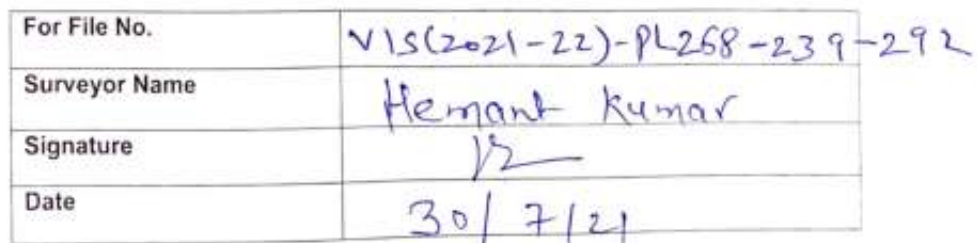 For File No. VIS(2021-22)-PL268-239-292
Surveyor Name Hemant Kumar
Signature
Date 30/7/21